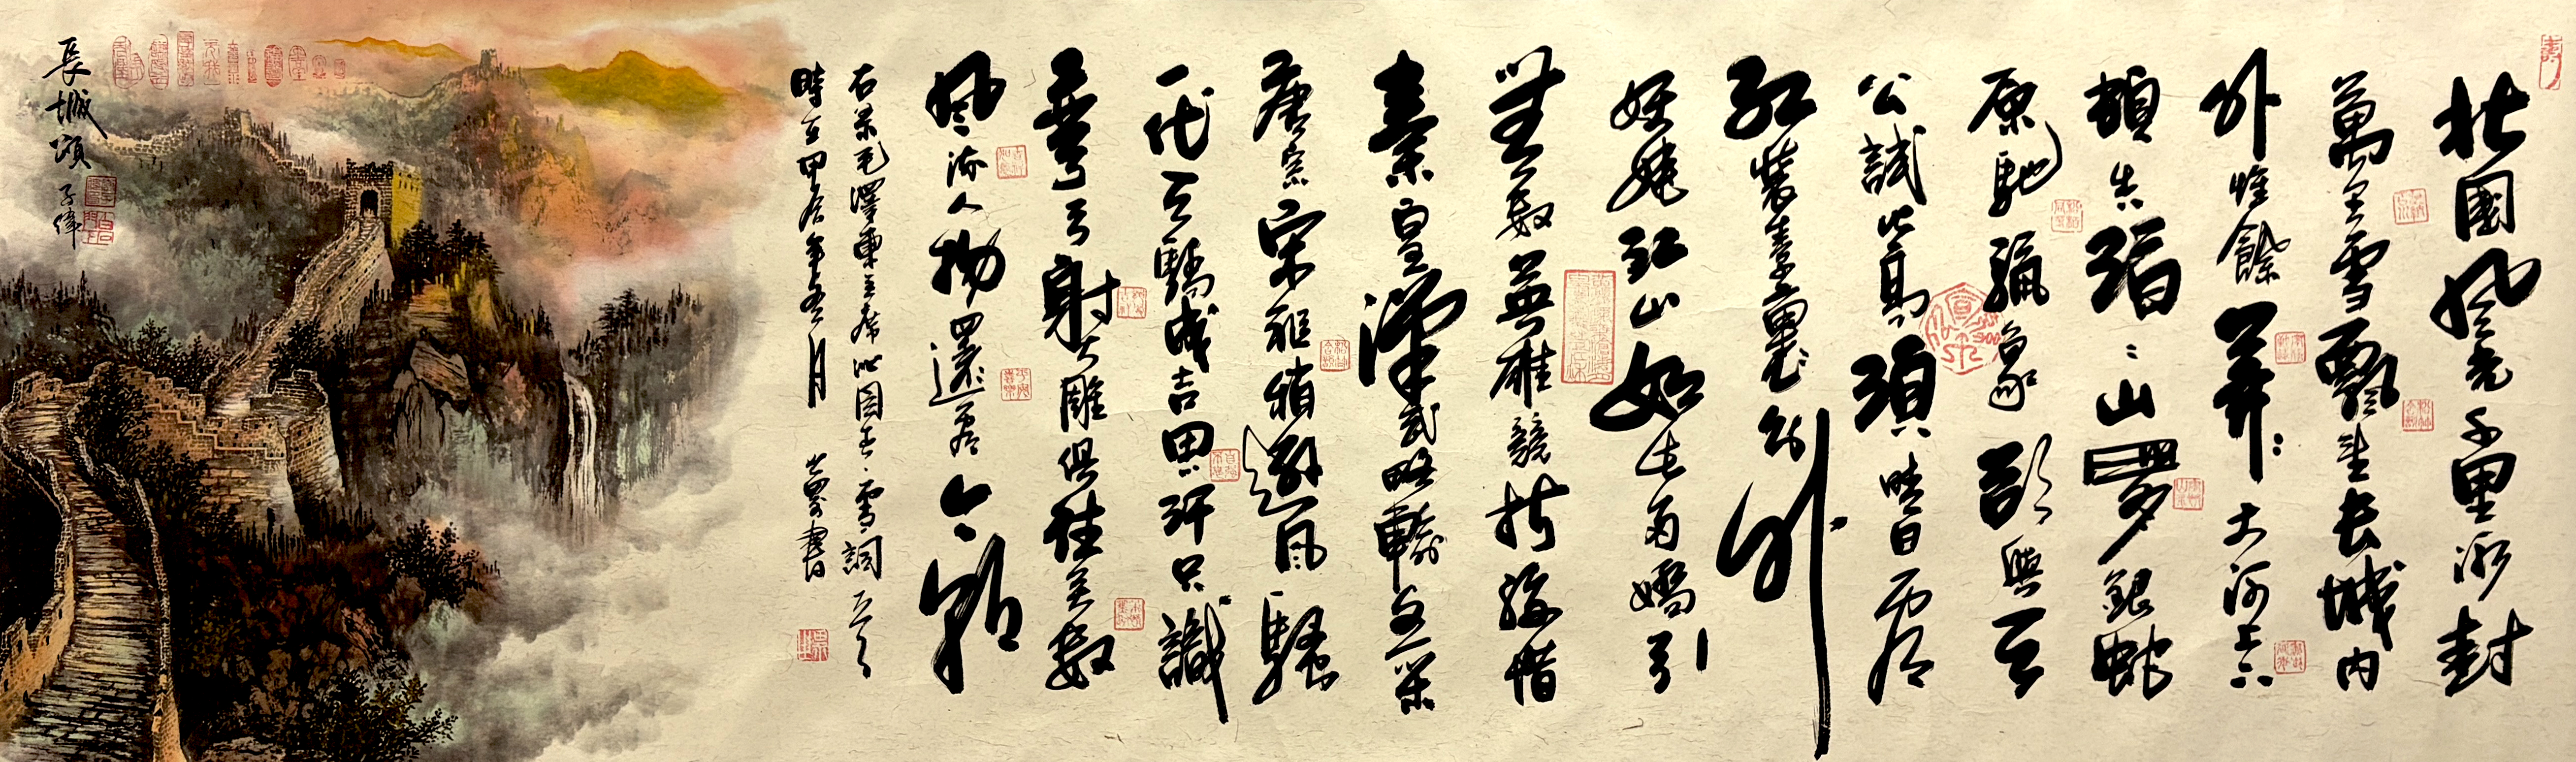 北國風光千里冰封
萬里雪飄望長城內
外惟餘莽々大河上下
頓失滔々山舞銀蛇
原馳蠟象欲與天
公試比高須晴日看
紅裝素裹分外
妖嬈江山如此多嬌引
無數英雄競折腰惜
秦皇漢武略輸文采
唐宗宋祖稍遜風騷
一代天驕成吉思汗只識
彎弓射大雕俱往矣數
風流人物還看今朝
右录毛澤東主席沁園春雪詞
時在甲辰年冬月 書
長城頌 子偉